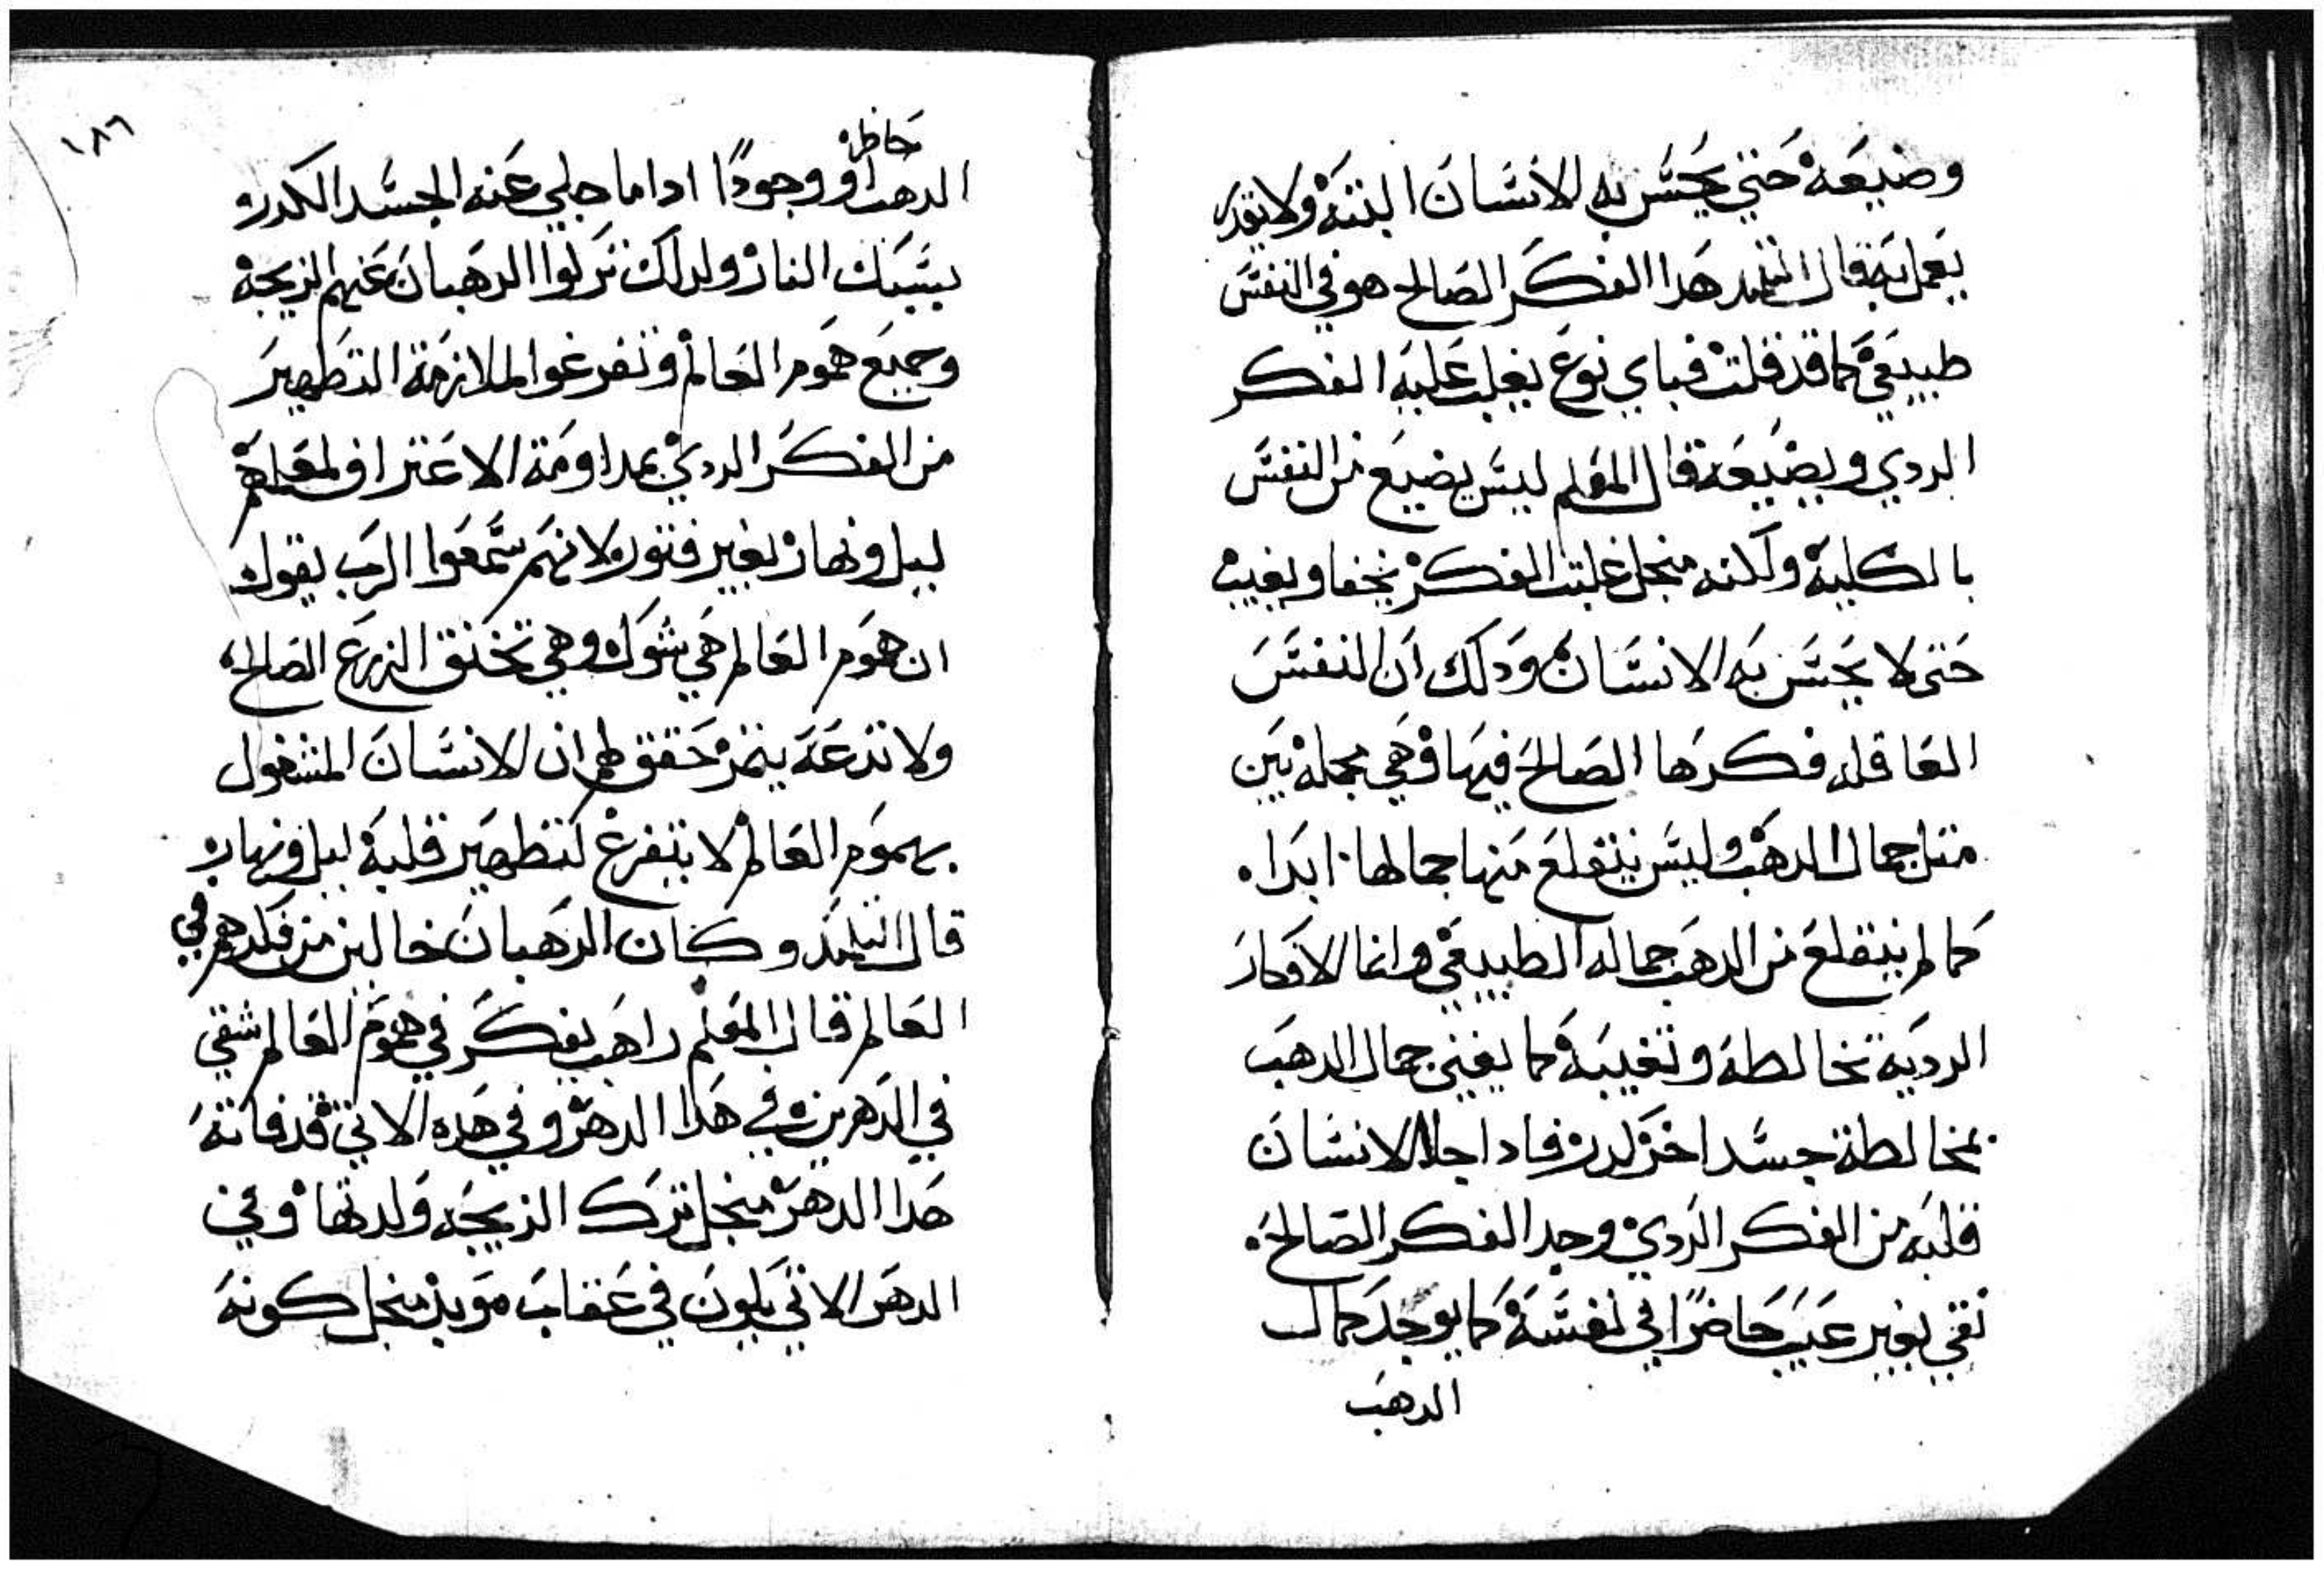 وضيعه حتي يحس به الانسان البته ولا يقدر
يعمل به قال التلميد هدا الفكر الصالح هو في النفس
طبيعي كما قد قلت فباي نوع يغلب عليه الفكر
الردي ويضيعه قال المعلم ليس يضيع من النفس
بالكليه ولكنه منجل غلبت الفكر يخفا ويغيب
حتى لا يحس به الانسان ودلك ان النفس
العاقله فكرها الصالح فيها وهي مجمله بين
متل جمال الدهب وليس ينقلع منها جمالها ابدا.
كما لم ينقلع من الدهب جماله الطبيعي وانما الافكار
الرديه تخالطه وتغيبه كما يغيب جمال الدهب
بمخالطة جسد اخر لدر فادا جلا الانسان
قلبه من الفكر الردي وجد الفكر الصالح.
نقي بغير عيب حاضرا في نفسه كما يوجد كمال
الدهب
١٨٦
حاظر
الدهب او وجودا ادا ما جلي عنه الجسد الكدر و
يسبك النار ولداك تركوا الرهبان عنهم الزيجه
وجميع هموم العالم وتفرغوا لملازمة التطهير
من الفكر الردي بمداومة الاعتراف لمعلمهم
ليل ونهار بغير فتور ولانهم سمعوا الرب يقول
ان هموم العالم هي شوك وهي تخنق الزرع الصالح
ولا تدعه يتمر وحقق لهم ان الانسان المشغول
بهموم العالم لا يتفرغ لتطهير قلبه ليل ونهار
قال التلميد وكان الرهبان خاليين من فكر هم في
العالم قال المعلم راهب يفكر في هموم العالم شقي
في الدهرين في هدا الدهر وفي هده الاتي قد فاتته
هدا الدهر منجل ترك الزيجه ولدتها وفي
الدهر الاتي يكون في عقاب موبد منجل كونه